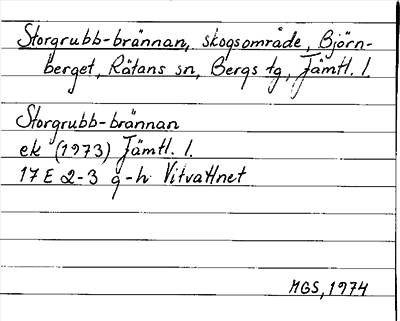 Storgrubb-brännan, skogsområde, Björn-
berget, Rätans sn, Bergs tg, Jämtl. l.
Storgrubb-brännan
ek (1973) Jämtl. l.
17 E 2-3 g-h Vitvattnet
MGS, 1974